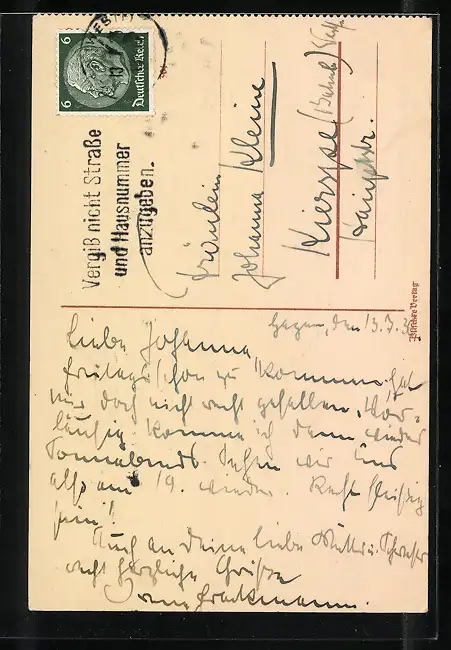 6 6
Deutsches Reich
Vergiß nicht Straße
und Hausnummer
anzugeben.
Fräulein
Johanna Kleine
Kierspe (Bahnh)
Kaiserstr.
Hagen, den 13.7.
Liebe Johanna,
Freitags schon zu kommen, hat
mir doch nicht recht gefallen. Vor-
läufig komme ich dann wieder
Sonnabends. Sehen wir uns
also am 19. wieder. Recht fleißig
sein!
Auch an deine liebe Mutter u. Schwester
recht herzliche Grüße
Verlag